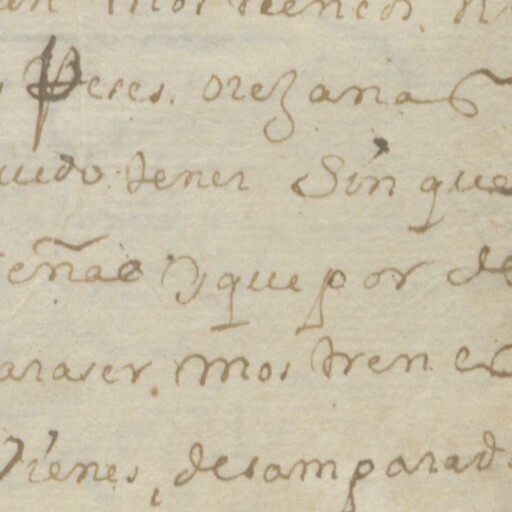 mostrencos
Peres orezana
uido tener Sin que
eñas y que por de
araser mostrenco
Vienes desamparad